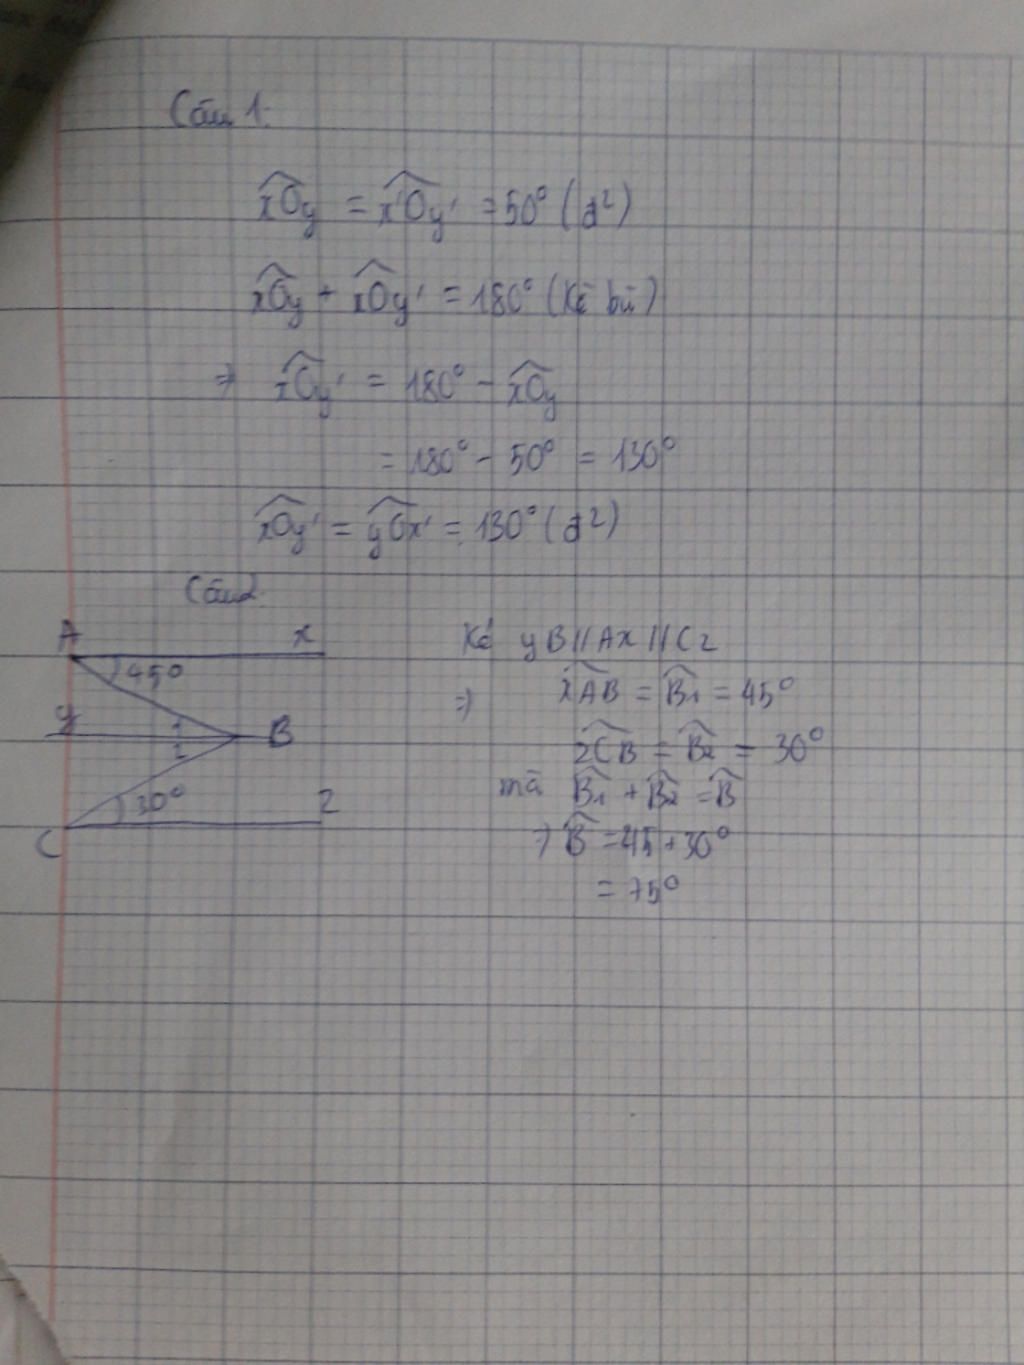 Câu 1:
xOy = x'Oy' = 50° (đ²)
xOy + xOy' = 180° (Kề bù)
=> xOy' = 180° - xOy
= 180° - 50° = 130°
xOy' = yOx' = 130° (đ²)
Câu 2
A x
45°
y 1 B
2
30° z
C
Kẻ yB // Ax // Cz
=> xAB = B1 = 45°
zCB = B2 = 30°
mà B1 + B2 = B
=> B = 45 + 30°
= 75°